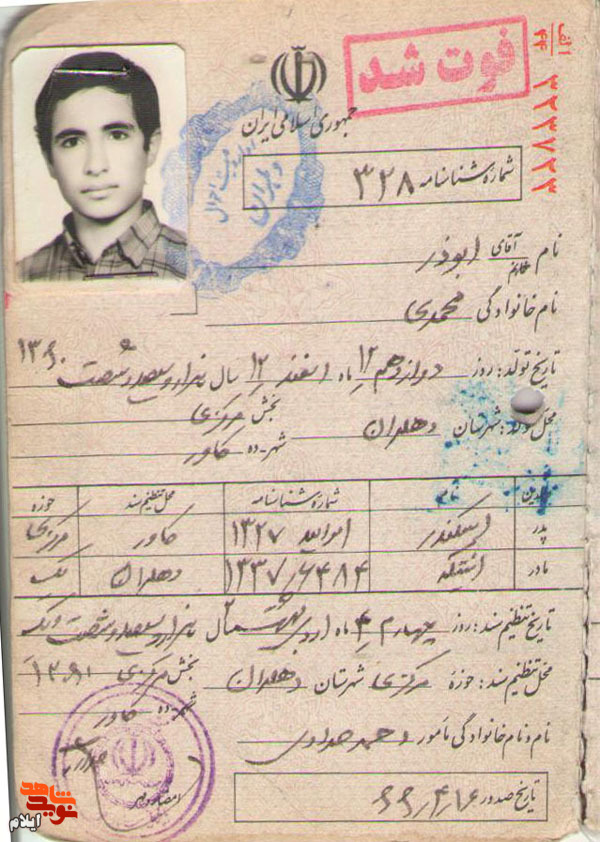 فوت شد
الف
۴۴
۲۲۳۷۲۳
جمهوری اسلامی ایران
شماره شناسنامه ۳۲۸
نام آقای خانم ابوذر
نام خانوادگی محمدی
تاریخ تولد: روز دوازدهم ۱۲ ماه اسفند ۱۲ سال هزار و سیصد و شصت ۱۳۶۰
محل تولد: شهرستان دهلران بخش مرکزی
شهر-ده
والدین نام شماره شناسنامه محل تنظیم سند حوزه
پدر اسکندر ۱۳۲۷ مرکزی
مادر ۱۳۳۷/۶۴۸۴ دهلران یک
تاریخ تنظیم سند: روز چهارم ۴ ماه اردیبهشت سال هزار و سیصد و شصت و یک
محل تنظیم سند: حوزه مرکزی شهرستان دهلران بخش مرکزی
شهر-ده
نام و نام خانوادگی مأمور
تاریخ صدور ۶۶/۴/۱۶
نوید شاهد
ایلام